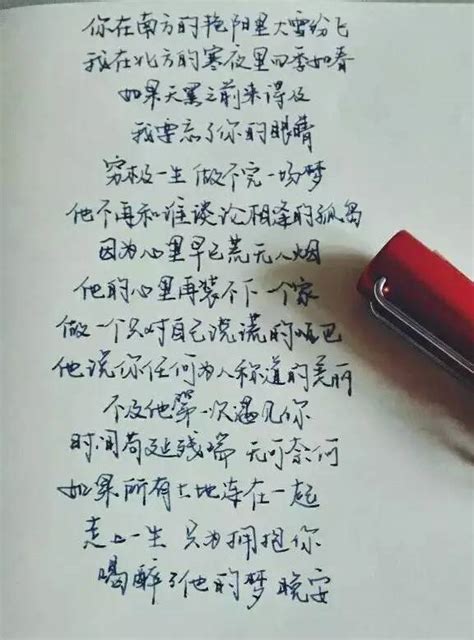 你在南方的艳阳里大雪纷飞
我在北方的寒夜里四季如春
如果天黑之前来得及
我要忘了你的眼睛
穷极一生 做不完一场梦
他不再和谁谈论相逢的孤岛
因为心里早已荒无人烟
他的心里再装不下一个家
做一个只对自己说谎的哑巴
他说你任何为人称道的美丽
不及他第一次遇见你
时间苟延残喘 无可奈何
如果所有土地连在一起
走上一生 只为拥抱你
喝醉了他的梦 晚安